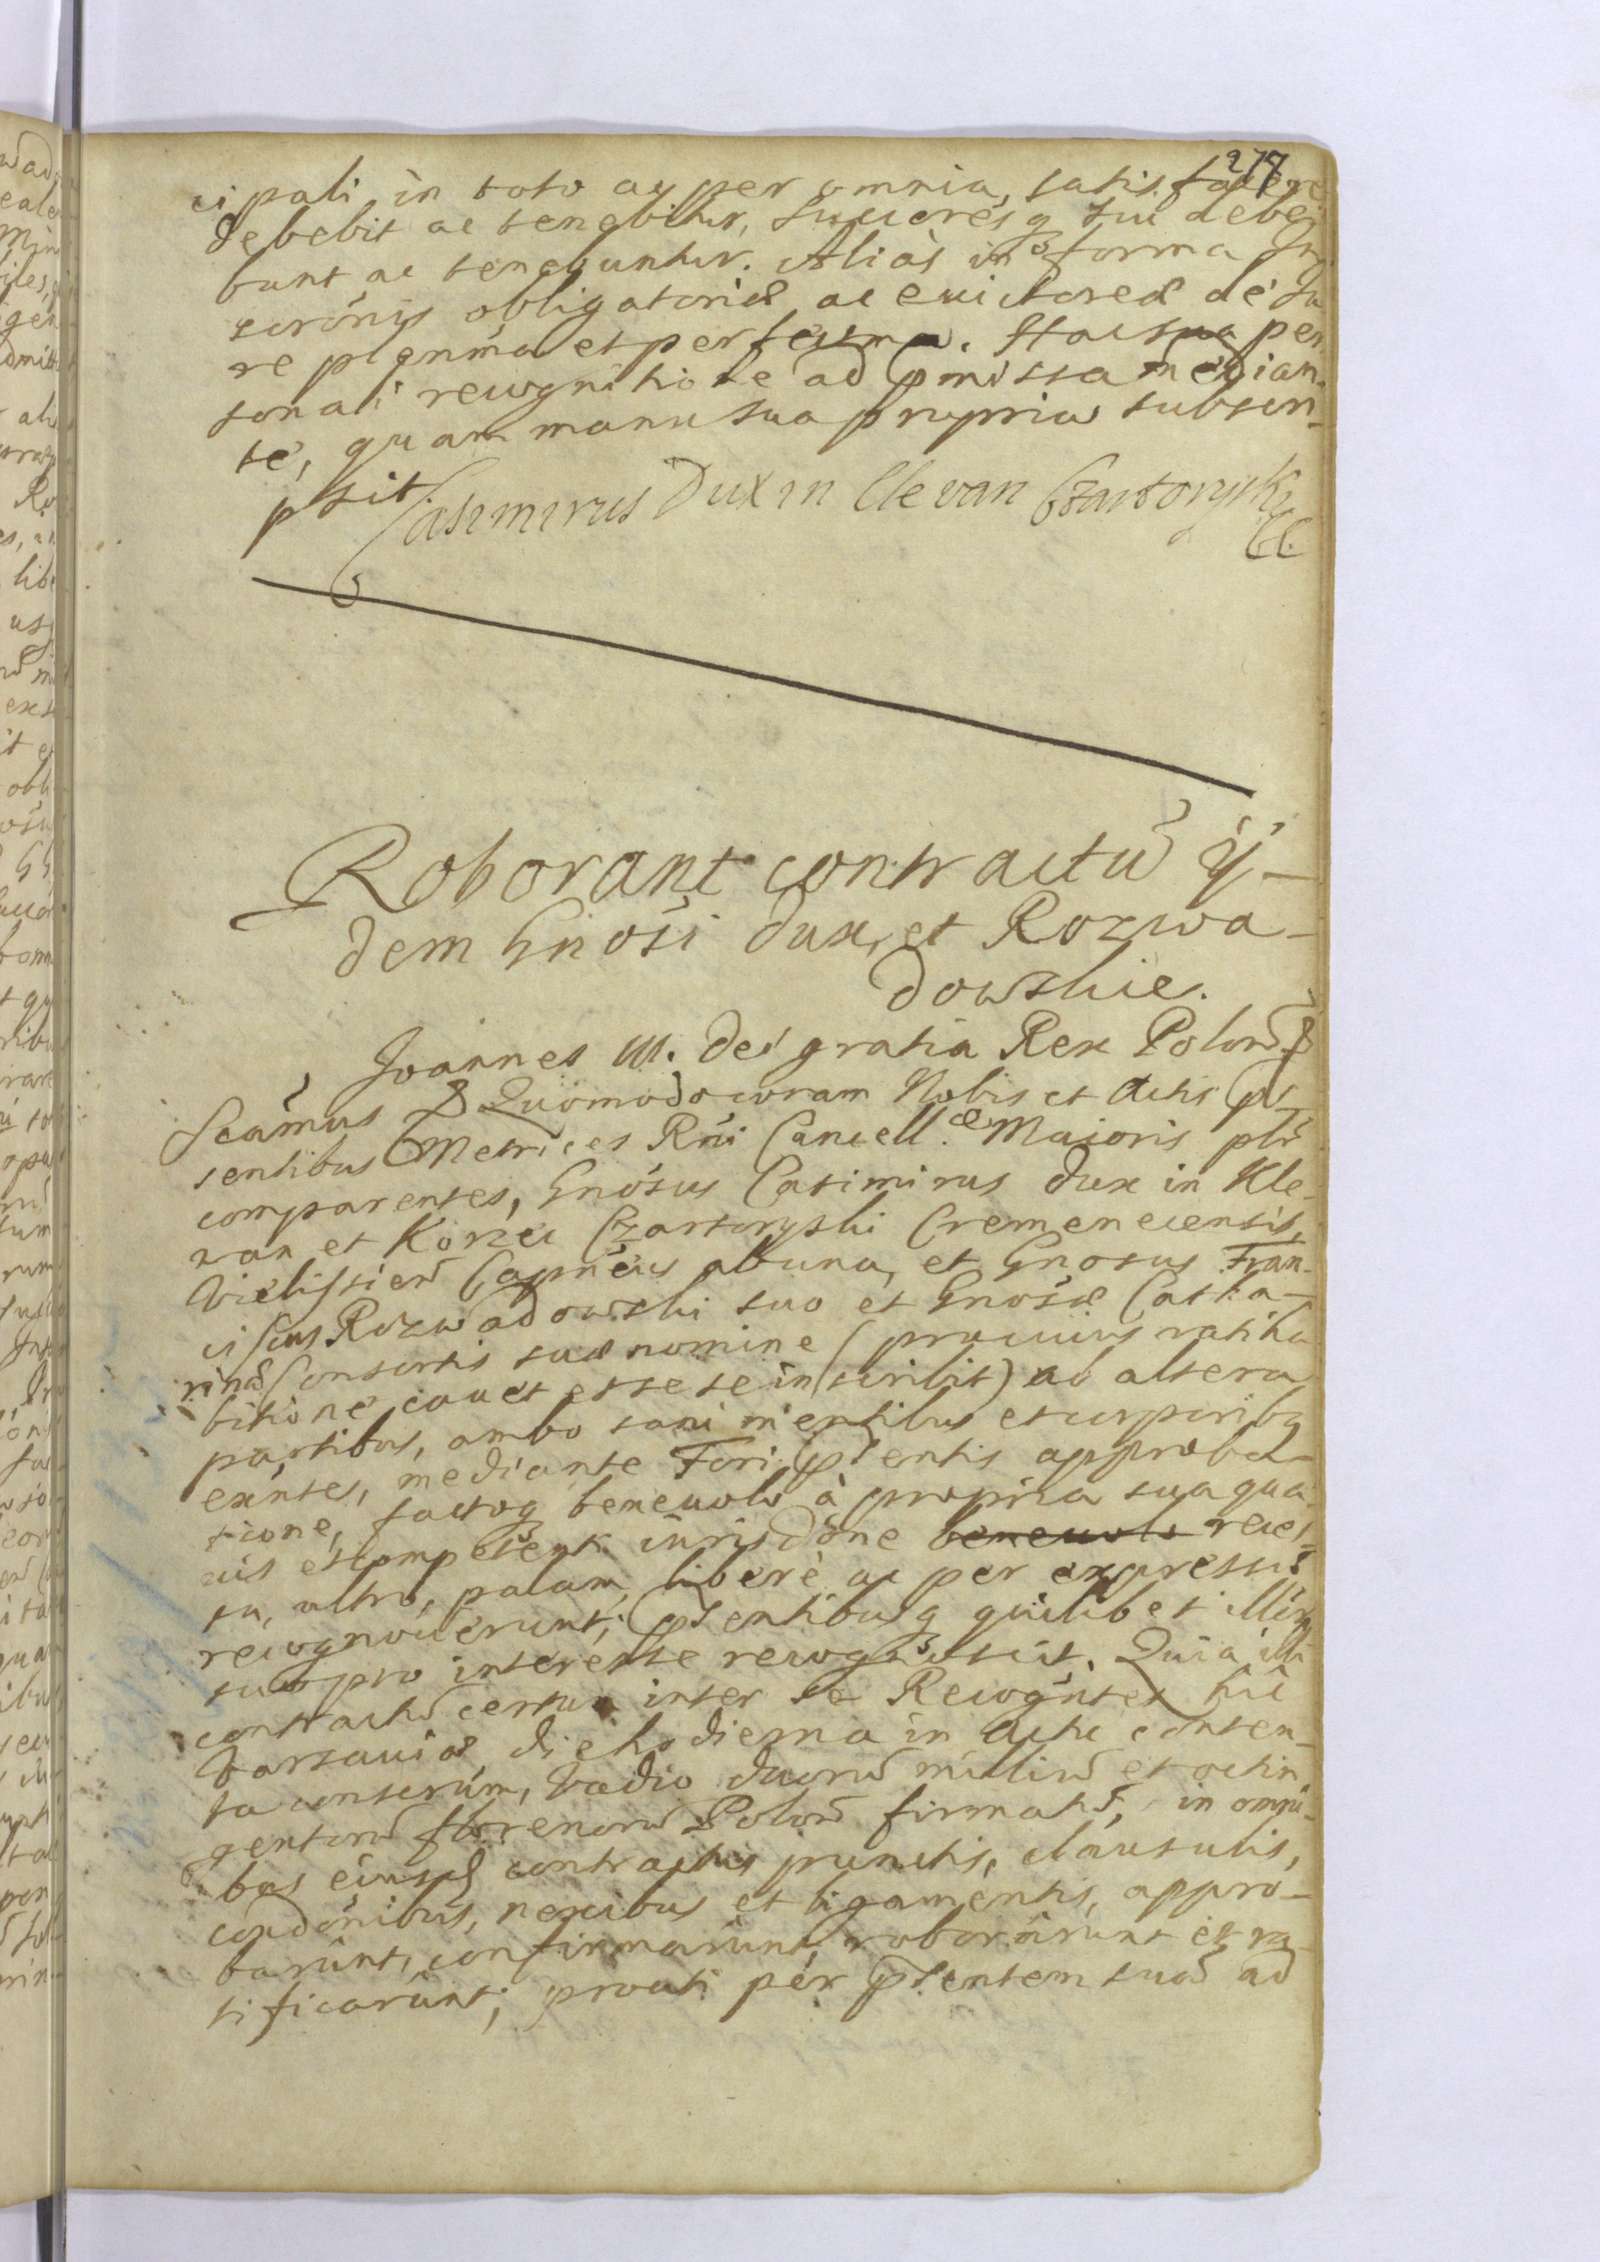 277
cipali in toto ac per omnia, satisfacere
debebit ac tenebitur, Succoresq̃ sui debe
bunt ac tenebuntur. Aliàs in forma In
scrönis obligatoriæ ac euictoreæ de Iu
re plenma et perfectma. Hac sua per
sonali recognitione ad pmissa median
te, quam manu sua propria subscri-
psit.
Casimirus Dux in Clevan Czartoryski
Roborant contractũ ij-
dem Gnosi Dux, et Rozwa-
dowskie.
Joannes III. Dei gratia Rex Polonũ &
Scamus & Quomodo coram Nobis et Actis præ
sentibus Metrices Rni Cancell. æ Maioris plr
comparentes, Gnosus Casimirus Dux in Kle-
van et Korzec Czartoryski Cremenecensis,
Capneus ab una, et Gnosus Fran-
ciscus Rozwadowski suo et Gnosæ Catha-
rinæ Consortis suæ nomine (pro cuius ratiha
bitione cauet et sese inscribit) ab altera
partibus, ambo sani mentibus et corporibq
exintes, mediante Fori pñtentis approba-
tione, factoq beneuolo à propria sua qua-
uis et competenti iurisdone beneuolo reces-
su, ultro, palam, liberè ac per expressũ
recognouerunt; pñtentibusq quilibet illõrũ
suo pro interesse recognoscit. Quia illi
contractũ certum inter se Recognntes hîc
Varsauiæ die hodierna in Actu conten-
ta conserúm, Vadio duorũ milliũ et octin
gentorũ florenorũ Polonũ firmatũ, in omni-
bus eiusdẽ contractus punctis, clausulis,
condonibus, nexibus et ligamentis, appro-
barunt, confirmârunt, roborârunt et ra-
tificarûnt; prouti per pñtentem suã ad